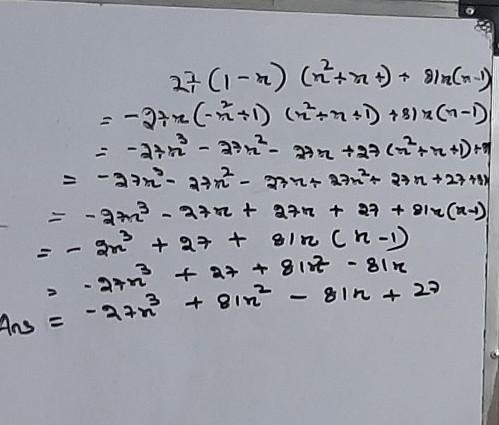 27(1-x) (x²+x+) + 81x(x-1)
= -27x(-x²+1) (x²+x+1) +81x(x-1)
= -27x³ - 27x² - 27x +27(x²+x+1)+
= -27x³ - 27x² - 27x + 27x² + 27x +27+8
= -27x³ - 27x + 27x + 27 + 81x(x-1)
= - 2x³ + 27 + 81x (x-1)
= -27x³ + 27 + 81x² - 81x
Ans = -27x³ + 81x² - 81x + 27